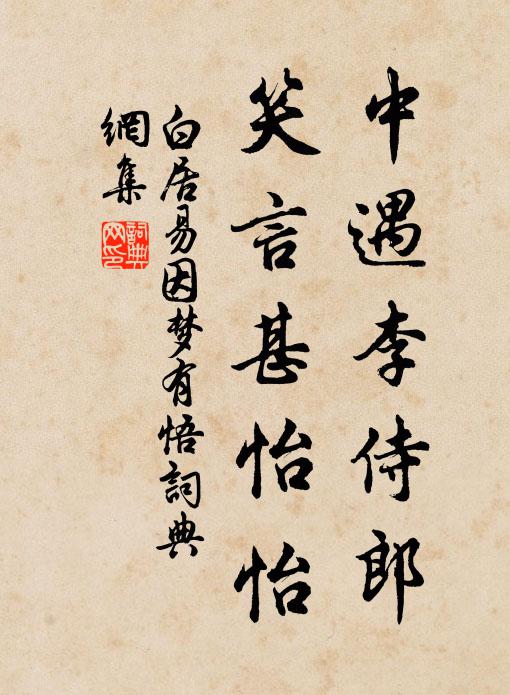 中遇李侍郎
笑言甚怡怡
白居易因梦有悟詞典
網集
詞典
网印